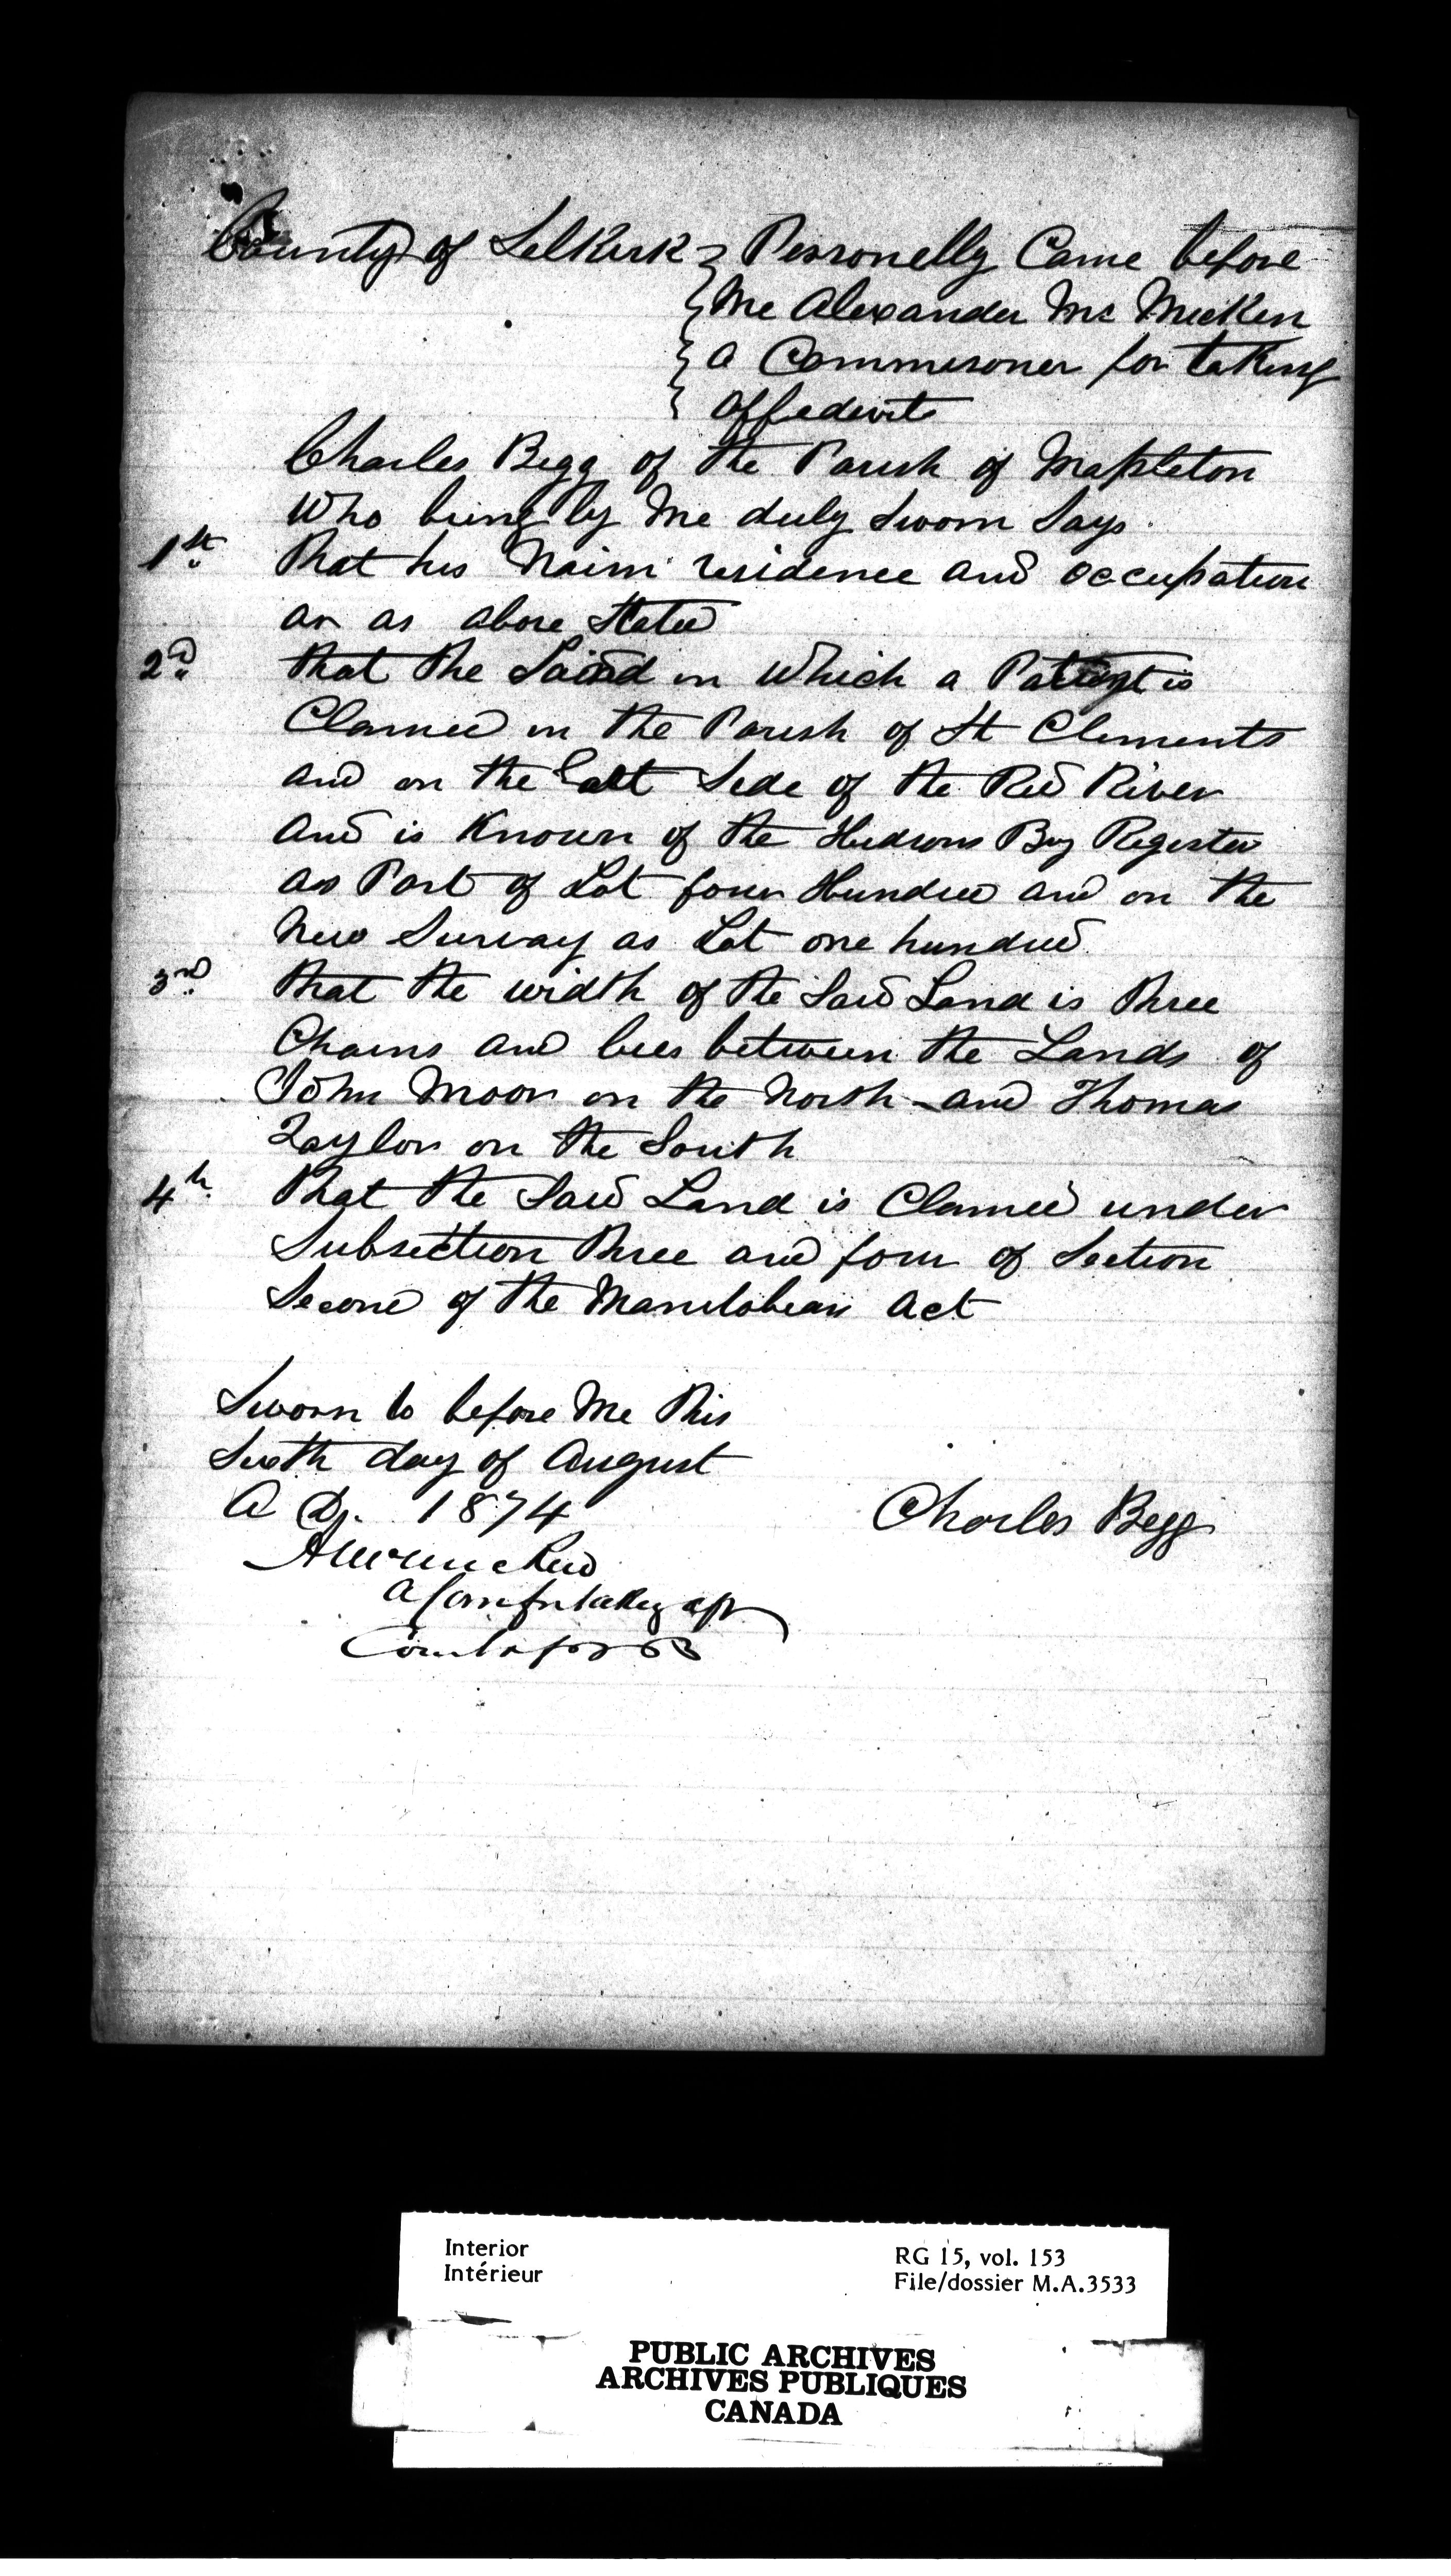 County of Selkirk } Personelly Came before
Me Alexander Mc Micken
a Commisoner for taking
affedevits
Charles Begg of the Parish of Mapleton
Who being by Me duly Sworn Says
1st That his Naim residence and occupation
ar as above Stated
2d That the Land in Which a Patient is
Clamed in the Parish of St Clements
and on the East Side of the Red River
and is Known of the Hudsons Bay Register
as Part of Lot four Hundred and on the
New Survay as Lot one hundred
3rd That the width of the Said Land is three
Chains and lies between the Lands of
John Moor on the North and Thomas
Taylor on the South
4th That the Said Land is Clamed under
Subsection three and four of Section
Second of the Manitobian Act
Sworn to before Me this
Sixth day of August
A D. 1874
Charles Begg
A Com for taking aff
Interior
Intérieur
RG 15, vol. 153
File/dossier M.A.3533
PUBLIC ARCHIVES
ARCHIVES PUBLIQUES
CANADA